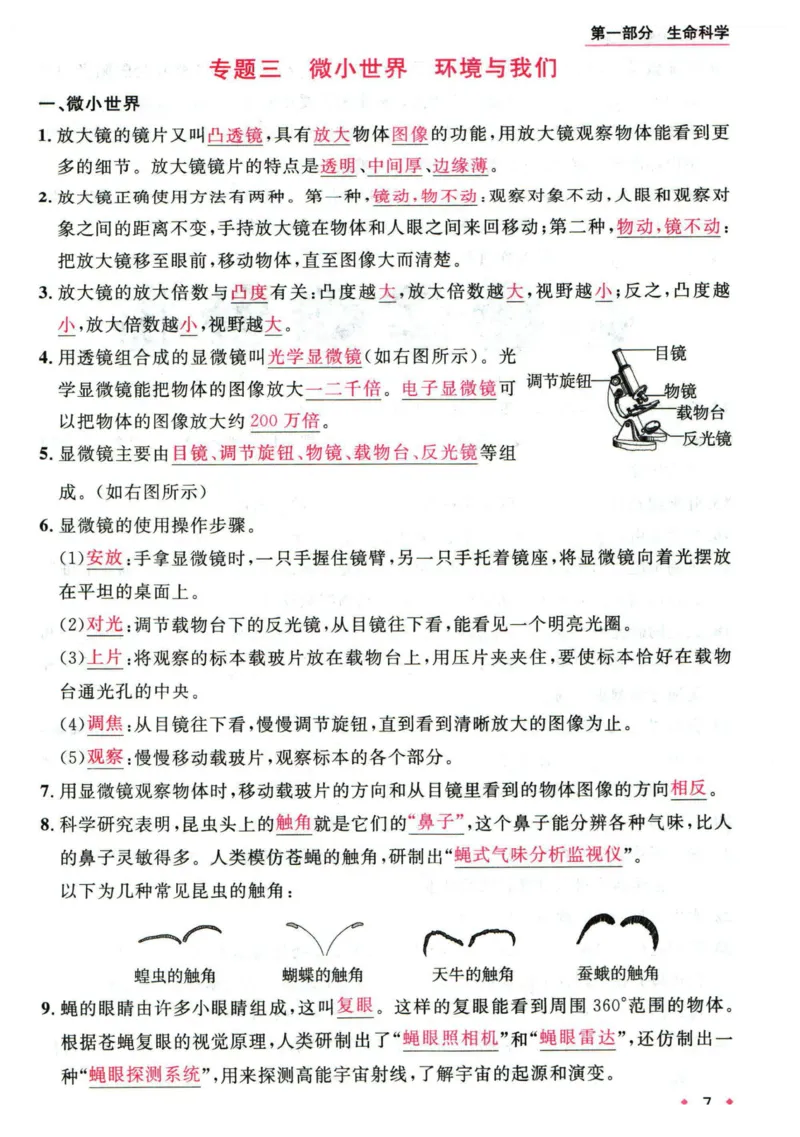 第一部分 生命科学
专题三 微小世界 环境与我们
一、微小世界
1. 放大镜的镜片又叫凸透镜,具有放大物体图像的功能,用放大镜观察物体能看到更
多的细节。放大镜镜片的特点是透明、中间厚、边缘薄。
2. 放大镜正确使用方法有两种。第一种,镜动,物不动:观察对象不动,人眼和观察对
象之间的距离不变,手持放大镜在物体和人眼之间来回移动;第二种,物动,镜不动:
把放大镜移至眼前,移动物体,直至图像大而清楚。
3. 放大镜的放大倍数与凸度有关:凸度越大,放大倍数越大,视野越小;反之,凸度越
小,放大倍数越小,视野越大。
4. 用透镜组合成的显微镜叫光学显微镜(如右图所示)。光
学显微镜能把物体的图像放大一二千倍。电子显微镜可
以把物体的图像放大约 200 万倍。
目镜
调节旋钮
物镜
载物台
反光镜
5. 显微镜主要由目镜、调节旋钮、物镜、载物台、反光镜等组
成。(如右图所示)
6. 显微镜的使用操作步骤。
(1)安放:手拿显微镜时,一只手握住镜臂,另一只手托着镜座,将显微镜向着光摆放
在平坦的桌面上。
(2)对光:调节载物台下的反光镜,从目镜往下看,能看见一个明亮光圈。
(3)上片:将观察的标本载玻片放在载物台上,用压片夹夹住,要使标本恰好在载物
台通光孔的中央。
(4)调焦:从目镜往下看,慢慢调节旋钮,直到看到清晰放大的图像为止。
(5)观察:慢慢移动载玻片,观察标本的各个部分。
7. 用显微镜观察物体时,移动载玻片的方向和从目镜里看到的物体图像的方向相反。
8. 科学研究表明,昆虫头上的触角就是它们的“鼻子”,这个鼻子能分辨各种气味,比人
的鼻子灵敏得多。人类模仿苍蝇的触角,研制出“蝇式气味分析监视仪”。
以下为几种常见昆虫的触角:
蝗虫的触角 蝴蝶的触角 天牛的触角 蚕蛾的触角
9. 蝇的眼睛由许多小眼睛组成,这叫复眼。这样的复眼能看到周围 360°范围的物体。
根据苍蝇复眼的视觉原理,人类研制出了“蝇眼照相机”和“蝇眼雷达”,还仿制出一
种“蝇眼探测系统”,用来探测高能宇宙射线,了解宇宙的起源和演变。
7